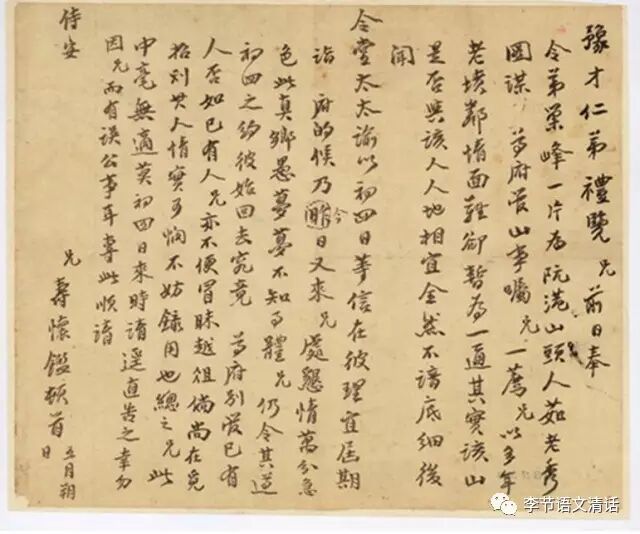 豫才仁弟禮覽兄前日奉
令弟巢峰一片為阮港山頭人茹老秀
圖謀 尊府管山事囑兄一薦兄以多年
老墳鄰情面難卻暫為一通其實該山
是否與該人人地相宜全然不諳底細後
聞
令堂太太諭以初四日等信在彼理宜屆期
詣 府的候乃昨今日又來兄處懇情萬分急
色此真鄉愚夢夢不知事體兄仍令其送
初四之約彼始回去究竟 尊府別管已有
人否如已有人兄亦不便冒昧越俎倘尚在覓
招則其人情實可憫不妨錄用也總之兄此
中毫無適莫初四日來時請 逕直告之幸勿
因兄而有誤公事耳專此順請
侍安
兄 壽懷鑑頓首 五月朔
日
李节语文清话